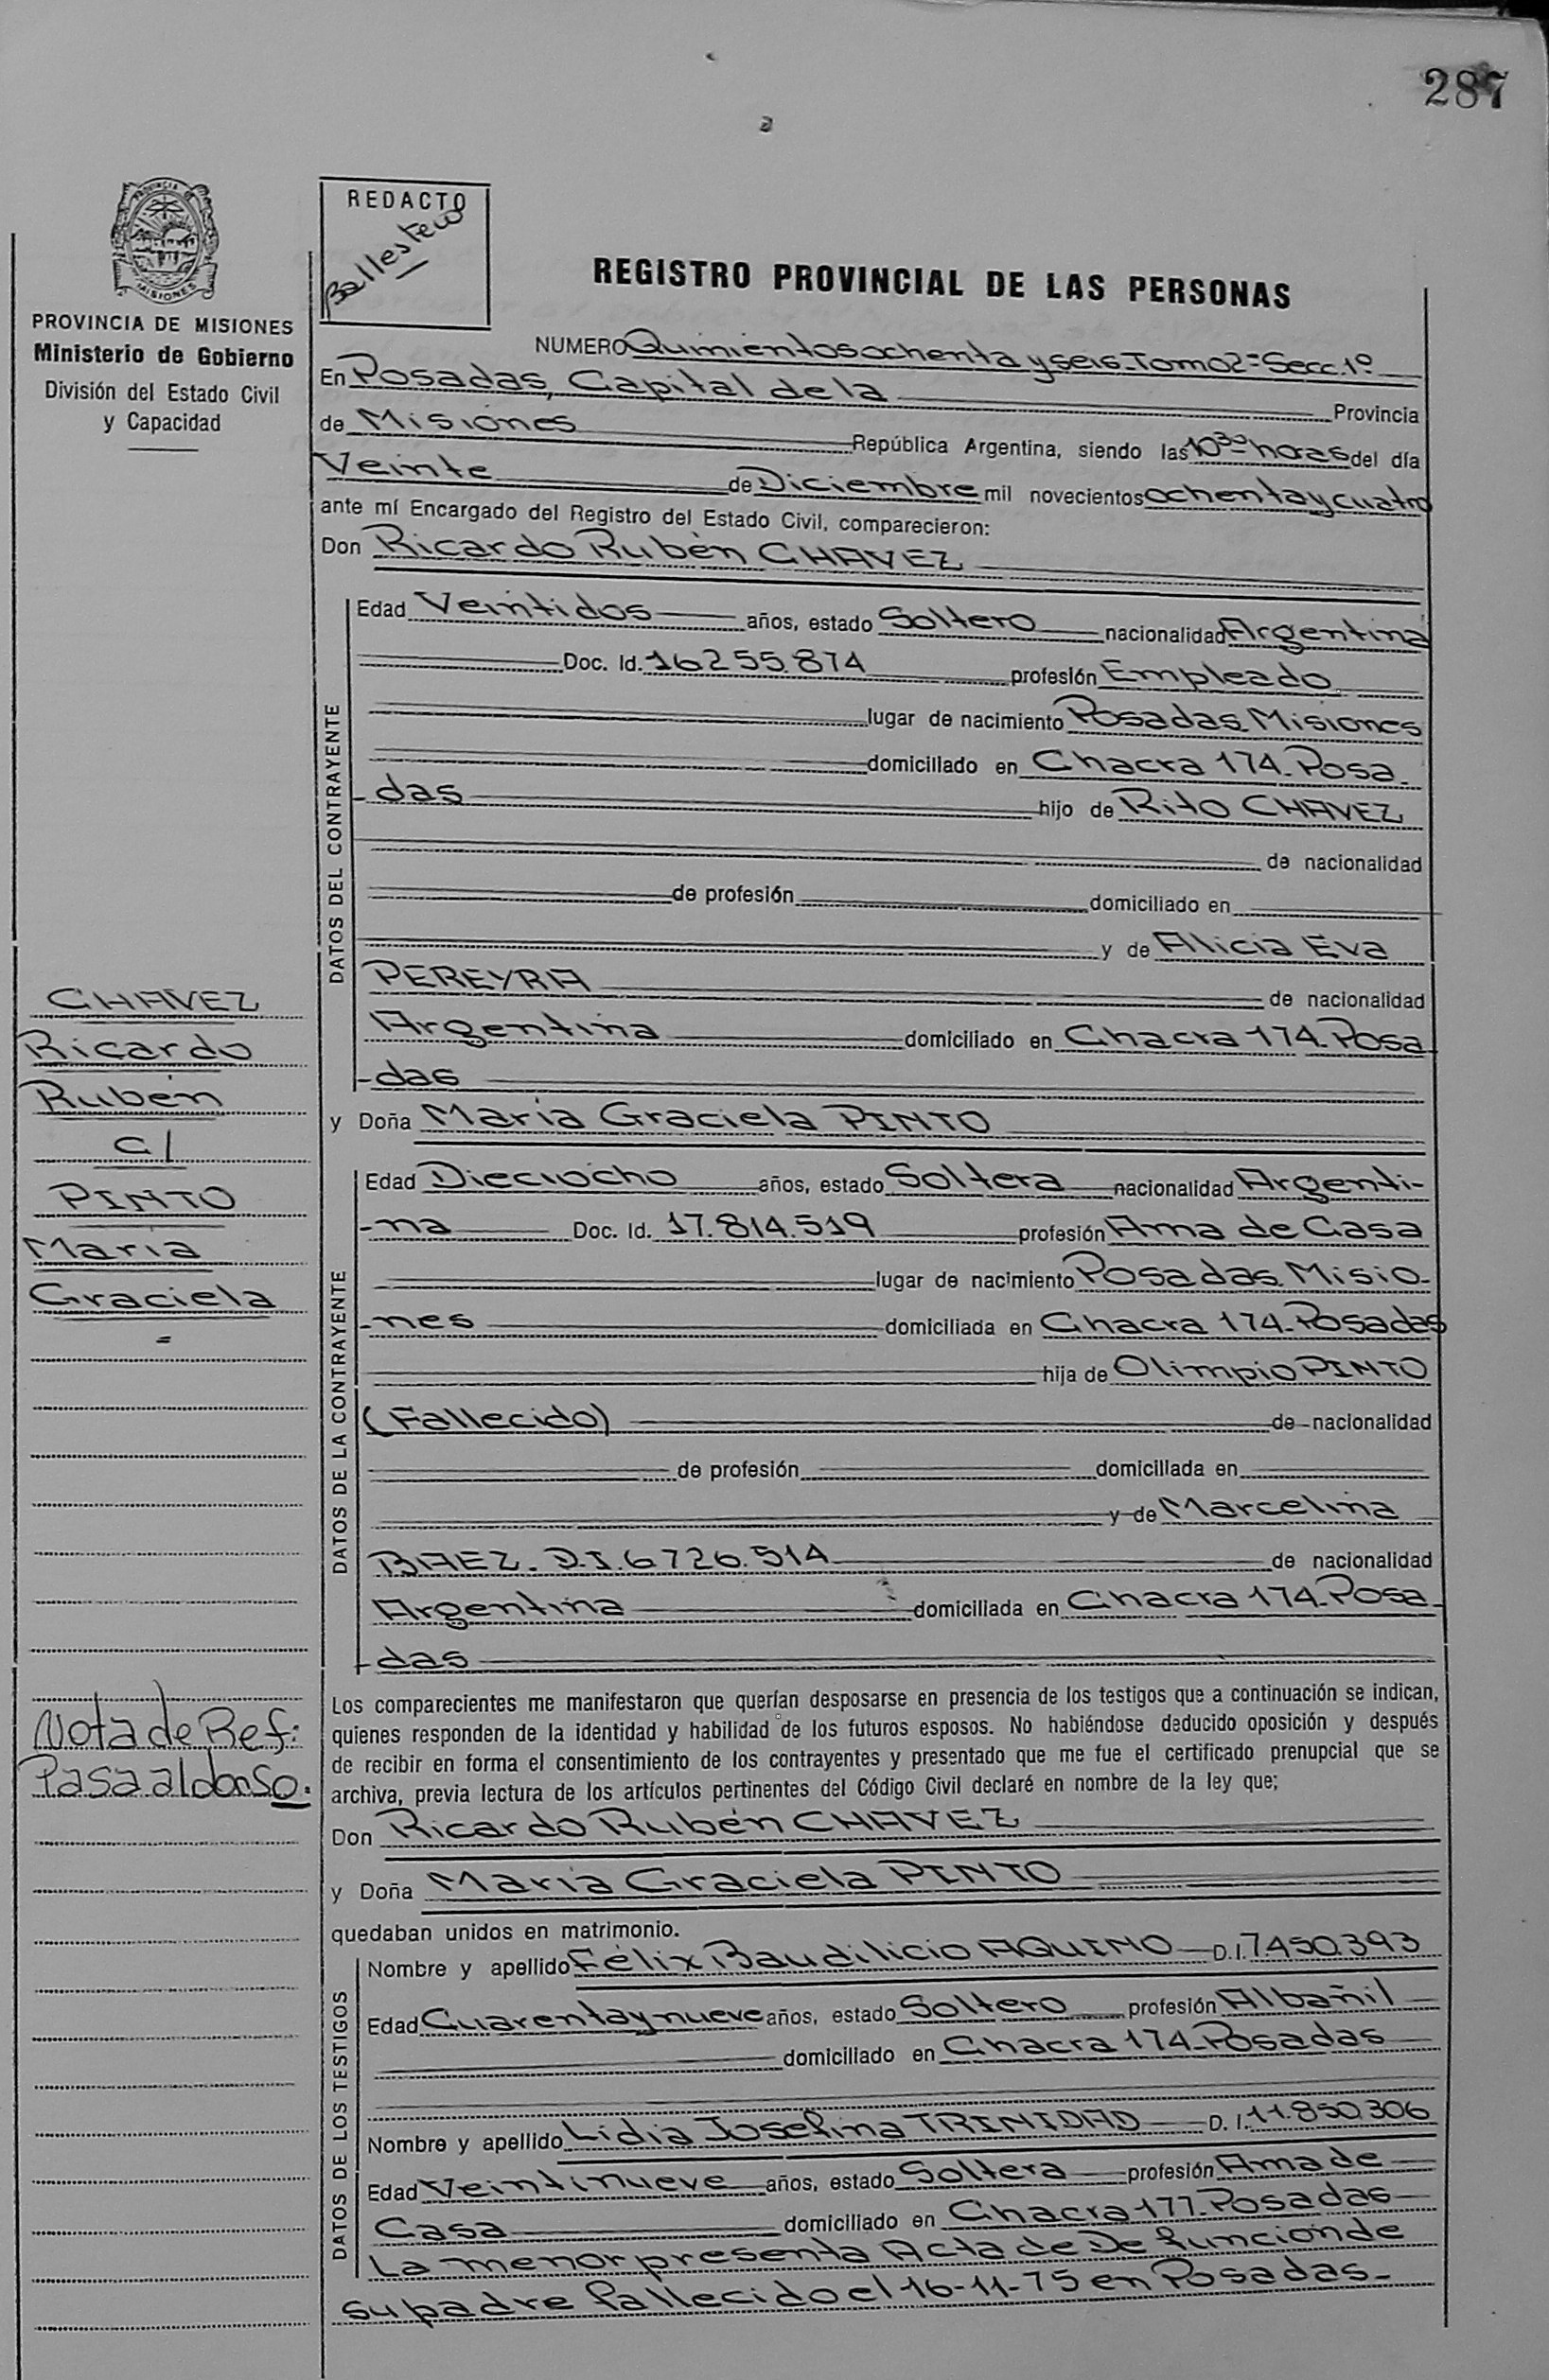 287
REDACTO
Ballestero
REGISTRO PROVINCIAL DE LAS PERSONAS
PROVINCIA DE MISIONES
Ministerio de Gobierno
División del Estado Civil
y Capacidad
NUMERO Quinientos ochenta y seis. Tomo 2º Secc. 1º
En Posadas, Capital de la Provincia
de Misiones República Argentina, siendo las 10 30 horas del día
Veinte de Diciembre mil novecientos ochenta y cuatro
ante mí Encargado del Registro del Estado Civil, comparecieron:
Don Ricardo Rubén CHAVEZ
DATOS DEL CONTRAYENTE
Edad Veintidos años, estado Soltero nacionalidad Argentina
Doc. Id. 16255.874 profesión Empleado
lugar de nacimiento Posadas Misiones
domiciliado en Chacra 174. Posa
das hijo de Rito CHAVEZ
de nacionalidad
de profesión domiciliado en
y de Alicia Eva
PEREYRA de nacionalidad
Argentina domiciliado en Chacra 174. Posa
-das
y Doña María Graciela PINTO
DATOS DE LA CONTRAYENTE
Edad Dieciocho años, estado Soltera nacionalidad Argenti-
-na Doc. Id. 17.814.519 profesión Ama de Casa
lugar de nacimiento Posadas. Misio-
-nes domiciliada en Chacra 174. Posadas
hija de Olimpio PINTO
(Fallecido) de nacionalidad
de profesión domiciliada en
y de Marcelina
BAEZ. D.I. 6.726.514 de nacionalidad
Argentina domiciliada en Chacra 174. Posa
-das
CHAVEZ
Ricardo
Rubén
C/
PINTO
María
Graciela
=
Nota de Ref:
Pasa al dorso.
Los comparecientes me manifestaron que querían desposarse en presencia de los testigos que a continuación se indican,
quienes responden de la identidad y habilidad de los futuros esposos. No habiéndose deducido oposición y después
de recibir en forma el consentimiento de los contrayentes y presentado que me fue el certificado prenupcial que se
archiva, previa lectura de los artículos pertinentes del Código Civil declaré en nombre de la ley que;
Don Ricardo Rubén CHAVEZ
y Doña María Graciela PINTO
quedaban unidos en matrimonio.
DATOS DE LOS TESTIGOS
Nombre y apellido Félix Baudilicio AQUINO D.I. 7450.393
Edad Cuarenta y nueve años, estado Soltero profesión Albañil
domiciliado en Chacra 174. Posadas
Nombre y apellido Lidia Josefina TRINIDAD D.I. 11.850.306
Edad Veintinueve años, estado Soltera profesión Ama de
Casa domiciliado en Chacra 177. Posadas
La menor presenta Acta de Defunción de
su padre fallecido el 16-11-75 en Posadas-